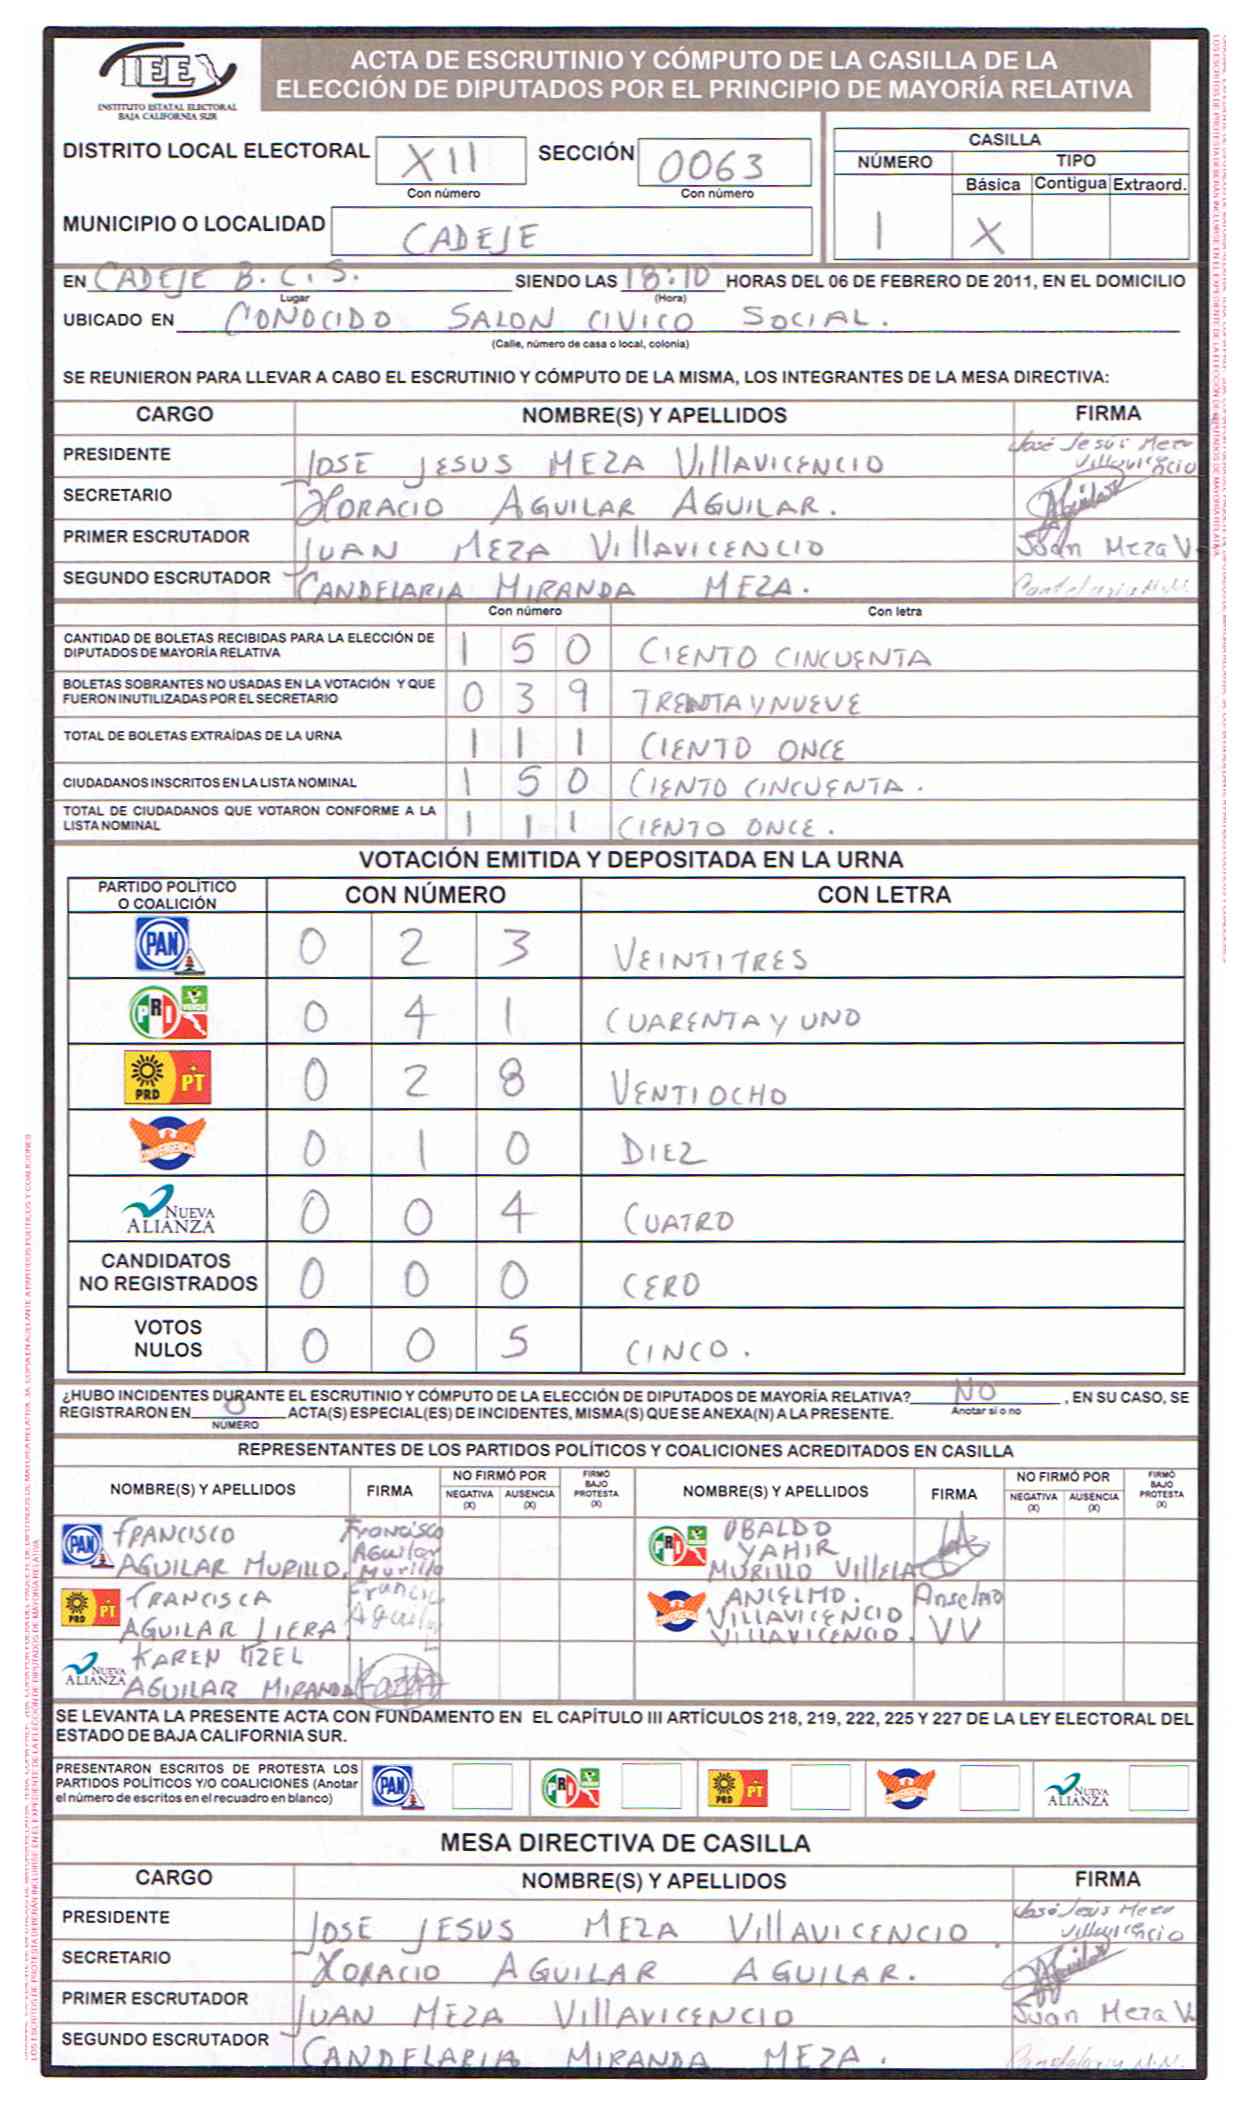 IEE
INSTITUTO ESTATAL ELECTORAL
BAJA CALIFORNIA SUR
ACTA DE ESCRUTINIO Y CÓMPUTO DE LA CASILLA DE LA
ELECCIÓN DE DIPUTADOS POR EL PRINCIPIO DE MAYORÍA RELATIVA
DISTRITO LOCAL ELECTORAL XII SECCIÓN 0063
Con número Con número
CASILLA
NÚMERO TIPO
Básica Contigua Extraord.
1 X
MUNICIPIO O LOCALIDAD CADEJE
EN CADEJE B.C.S. SIENDO LAS 18:10 HORAS DEL 06 DE FEBRERO DE 2011, EN EL DOMICILIO
Lugar (Hora)
UBICADO EN CONOCIDO SALON CIVICO SOCIAL.
(Calle, número de casa o local, colonia)
SE REUNIERON PARA LLEVAR A CABO EL ESCRUTINIO Y CÓMPUTO DE LA MISMA, LOS INTEGRANTES DE LA MESA DIRECTIVA:
CARGO NOMBRE(S) Y APELLIDOS FIRMA
PRESIDENTE JOSE JESUS MEZA VillAVICENCIO José Jesús Meza Villavicencio
SECRETARIO HORACIO AGUILAR AGUILAR. Aguilar
PRIMER ESCRUTADOR JUAN MEZA VillAVICENCIO Juan Meza V.
SEGUNDO ESCRUTADOR CANDELARIA MIRANDA MEZA. Candelaria M.M.
Con número Con letra
CANTIDAD DE BOLETAS RECIBIDAS PARA LA ELECCIÓN DE
DIPUTADOS DE MAYORÍA RELATIVA 1 5 0 CIENTO CINCUENTA
BOLETAS SOBRANTES NO USADAS EN LA VOTACIÓN Y QUE
FUERON INUTILIZADAS POR EL SECRETARIO 0 3 9 TRENTA Y NUEVE
TOTAL DE BOLETAS EXTRAÍDAS DE LA URNA 1 1 1 CIENTO ONCE
CIUDADANOS INSCRITOS EN LA LISTA NOMINAL 1 5 0 CIENTO CINCUENTA.
TOTAL DE CIUDADANOS QUE VOTARON CONFORME A LA
LISTA NOMINAL 1 1 1 CIENTO ONCE.
VOTACIÓN EMITIDA Y DEPOSITADA EN LA URNA
PARTIDO POLÍTICO
O COALICIÓN CON NÚMERO CON LETRA
PAN 0 2 3 VEINTITRES
PRI VERDE 0 4 1 CUARENTA Y UNO
PRD PT 0 2 8 VENTIOCHO
CONVERGENCIA 0 1 0 DIEZ
NUEVA ALIANZA 0 0 4 CUATRO
CANDIDATOS
NO REGISTRADOS 0 0 0 CERO
VOTOS
NULOS 0 0 5 CINCO.
¿HUBO INCIDENTES DURANTE EL ESCRUTINIO Y CÓMPUTO DE LA ELECCIÓN DE DIPUTADOS DE MAYORÍA RELATIVA? NO, EN SU CASO, SE
Anotar sí o no
REGISTRARON EN 0 ACTA(S) ESPECIAL(ES) DE INCIDENTES, MISMA(S) QUE SE ANEXA(N) A LA PRESENTE.
NÚMERO
REPRESENTANTES DE LOS PARTIDOS POLÍTICOS Y COALICIONES ACREDITADOS EN CASILLA
NOMBRE(S) Y APELLIDOS FIRMA NO FIRMÓ POR NEGATIVA (X) AUSENCIA (X) FIRMÓ BAJO PROTESTA (X) NOMBRE(S) Y APELLIDOS FIRMA NO FIRMÓ POR NEGATIVA (X) AUSENCIA (X) FIRMÓ BAJO PROTESTA (X)
PAN FRANCISCO AGUILAR MURILLO. Francisco Aguilar Murillo
PRI VERDE UBALDO YAHIR MURILLO VillELA
PRD PT FRANCISCA AGUILAR LIERA
CONVERGENCIA ANCELMO. VILLAVICENCIO VILLAVICENCIO. Anselmo VV
NUEVA ALIANZA KAREN ITZEL AGUILAR MIRANDA
SE LEVANTA LA PRESENTE ACTA CON FUNDAMENTO EN EL CAPÍTULO III ARTÍCULOS 218, 219, 222, 225 Y 227 DE LA LEY ELECTORAL DEL
ESTADO DE BAJA CALIFORNIA SUR.
PRESENTARON ESCRITOS DE PROTESTA LOS
PARTIDOS POLÍTICOS Y/O COALICIONES (Anotar
el número de escritos en el recuadro en blanco) PAN PRI VERDE PRD PT CONVERGENCIA NUEVA ALIANZA
MESA DIRECTIVA DE CASILLA
CARGO NOMBRE(S) Y APELLIDOS FIRMA
PRESIDENTE JOSE JESUS MEZA VillAVICENCIO. José Jesús Meza Villavicencio
SECRETARIO HORACIO AGUILAR AGUILAR. Aguilar
PRIMER ESCRUTADOR JUAN MEZA VillAVICENCIO Juan Meza V.
SEGUNDO ESCRUTADOR CANDELARIA MIRANDA MEZA. Candelaria M.M.